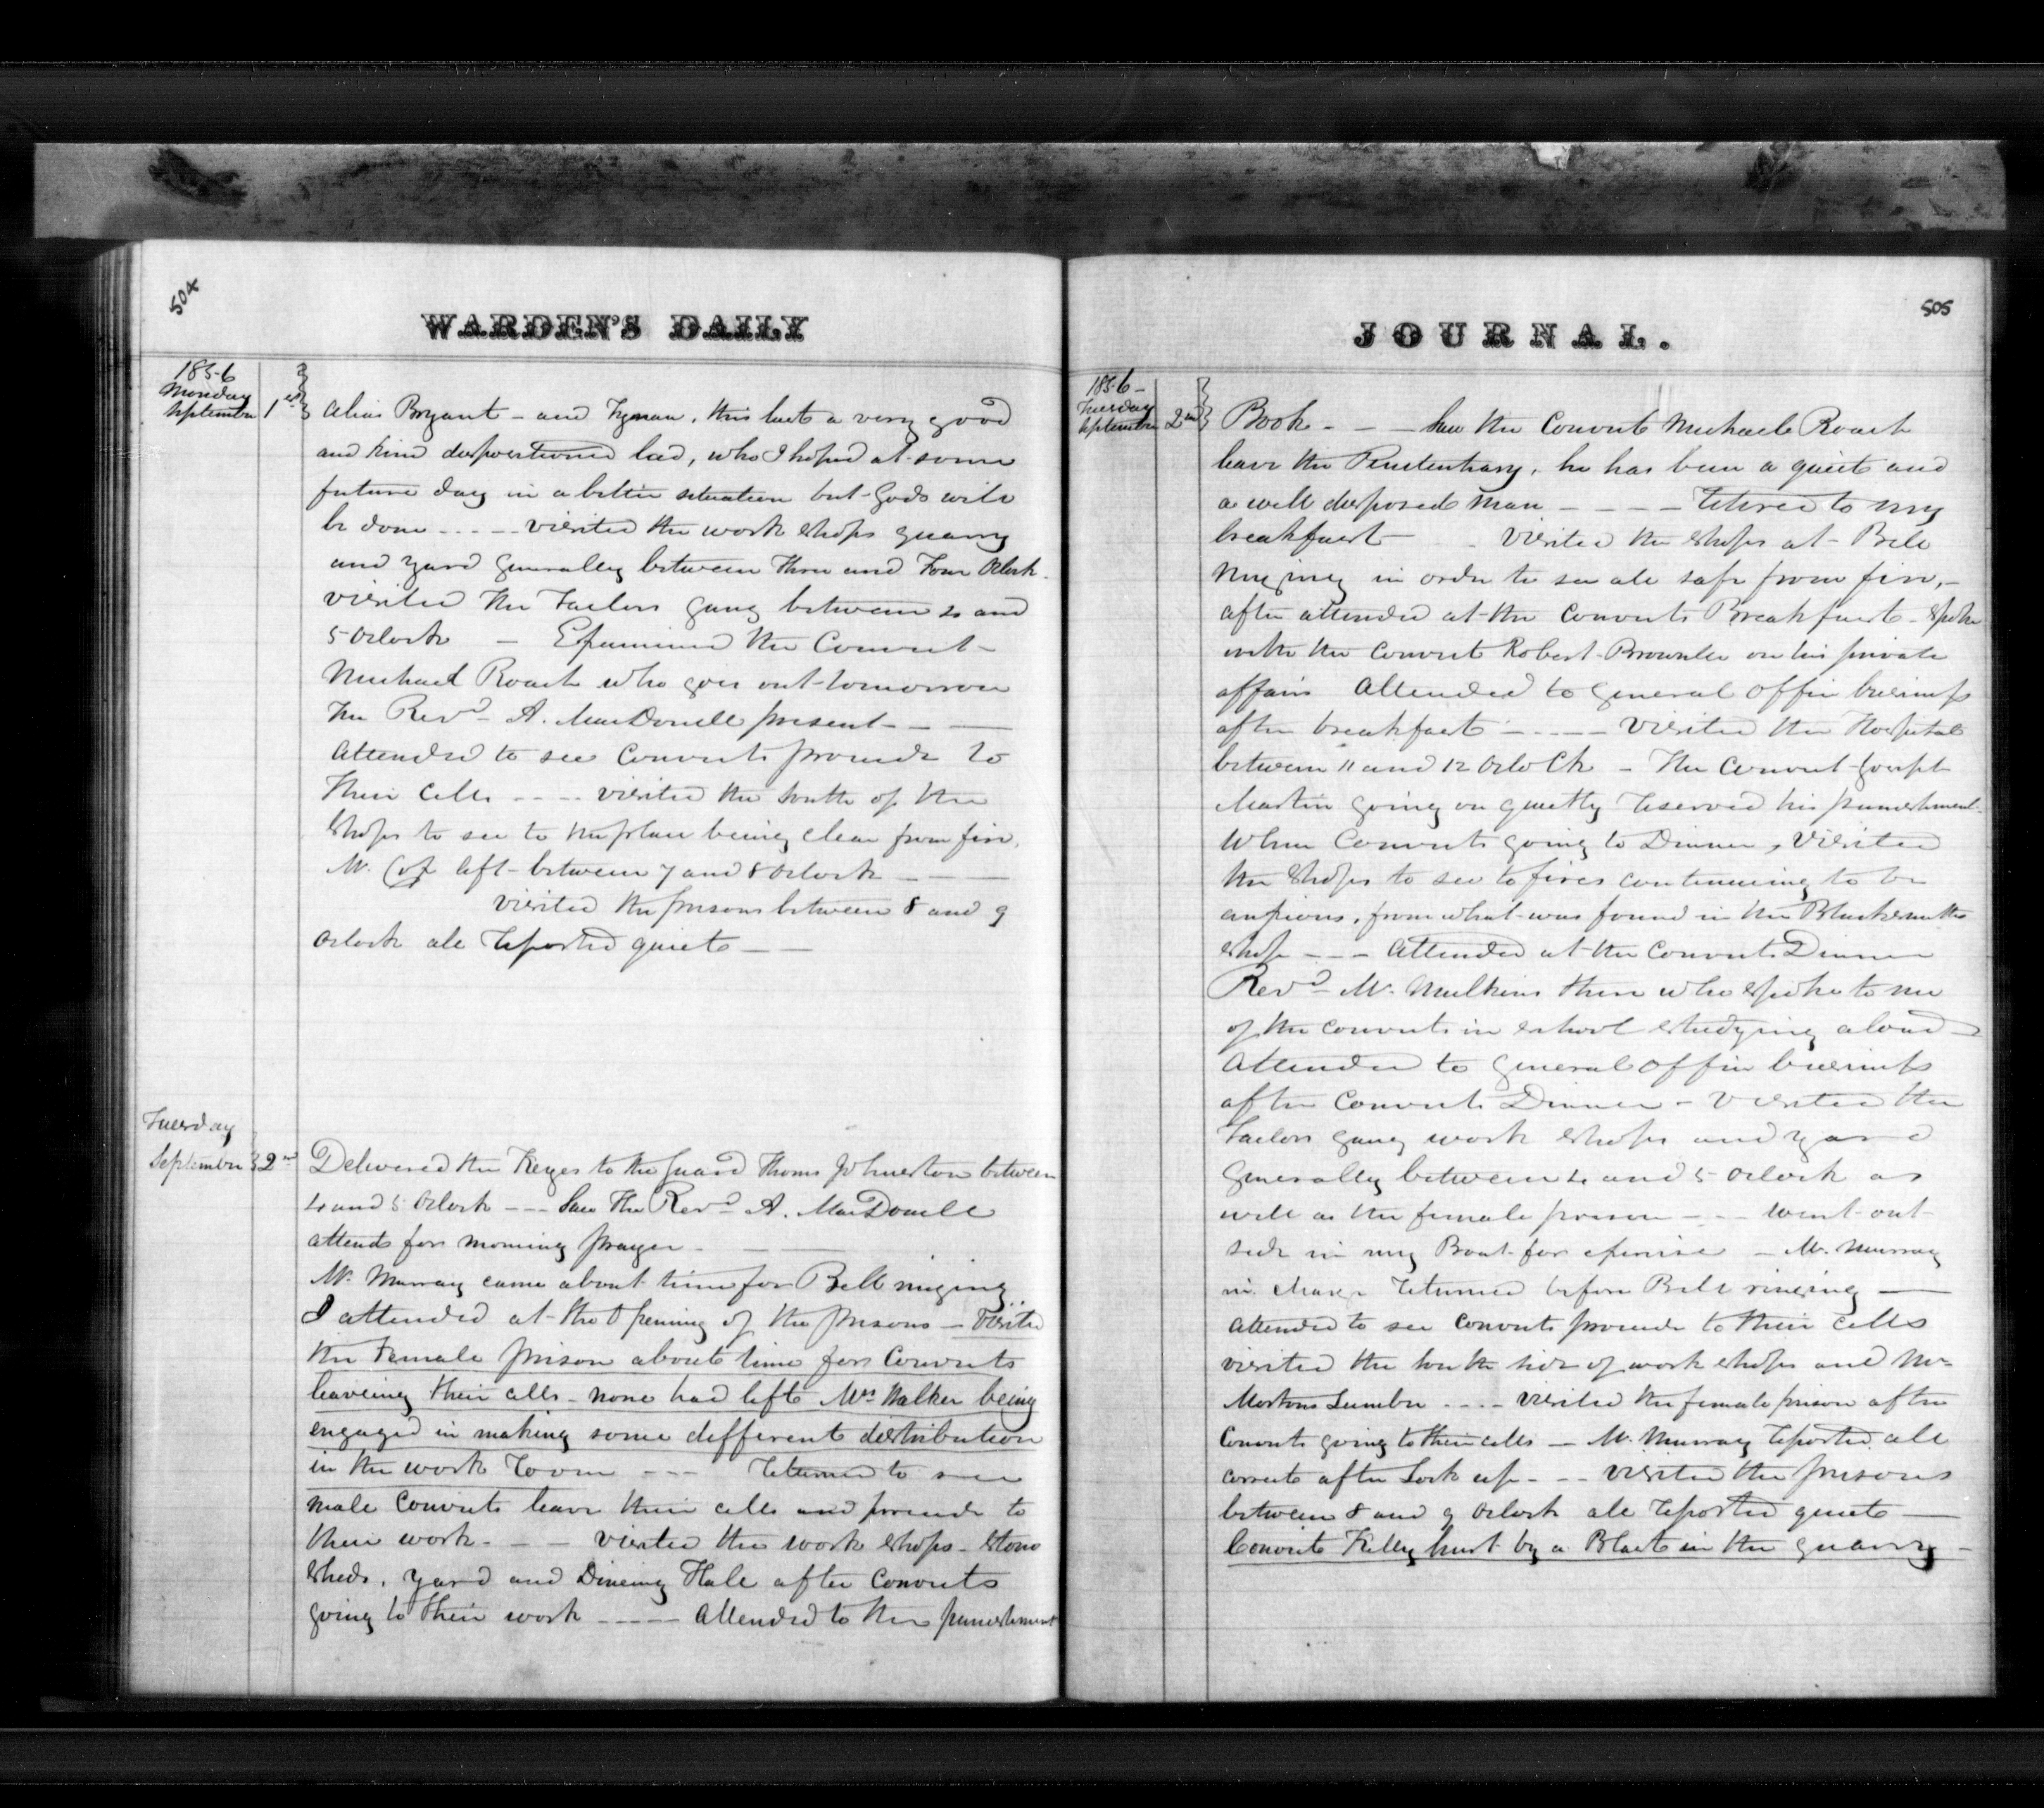 504
WARDEN'S DAILY
1856
Monday
September 1st
alias Bryant - and Tynan, this last a very good
and kind dispositioned lad, who I hoped at some
future day in a better situation but Gods will
be done - - - - visited the work shops quarry
and yard generally between Three and Four Oclock.
visited the Tailors gang between 4 and
5 Oclock - Examined the Convict
Michael Roach who goes out tomorrow
the Revd A. MacDonell present - - -
attended to see Convicts proceede to
their cells - - - - visited the South of the
shops to see to the place being clear from fire.
Mr. left between 7 and 8 Oclock - - -
visited the prisons between 8 and 9
Oclock all reported quiet - -
Tuesday
September 2nd
Delivered the Keyes to the guard Thoms Johnston between
4 and 5 Oclock - - - Saw the Revd A. MacDonell
attend for morning prayer -
Mr. Murray came about time for Bell ringing
I attended at the Opening of the prisons - Visited
the Female prison about time for Convicts
leaveing their cells - none had left Mrs Walker being
engaged in making some different distribution
in the work room - - - returned to see
male Convicts leave their cells and proceede to
their work - - - visited the work shops - stone
sheds, yard and Dineing Hall after Convicts
going to their work - - - - attended to the punishment
JOURNAL.
505
1856 -
Tuesday
September 2nd
Book - - - Saw the Convict Michael Roach
leave the Penitentiary, he has been a quiet and
a well disposed man - - - - retired to my
breakfast - visited the shops at Bell
ringing in order to see all safe from fire, -
after attended at the Convicts Breakfast - spoke
with the Convict Robert Brownlee on his private
affairs attended to General Office business
after breakfast - - - - visited the Hospital
between 11 and 12 OcloCk - The Convict Joseph
Martin going on quietly reserved his punishment.
When Convicts going to Dinner, Visited
the shops to see to fires continueing to be
anxious, from what was found in the Blacksmiths
shop - - - attended at the Convicts Dinner
Revd Mr. Mulkins there who spoke to me
of the convicts in school studying aloud -
attended to General Office business
after Convicts Dinner - Visited the
Tailors gang work shops and yard
Generally between 4 and 5 Oclock as
well as the female prison - - - went out
side in my Boat for exercise - Mr. Murray
in charge returned before Bell ringing -
attended to see Convicts proceede to their cells
visited the South side of work shops and Mr.
Mortons Lumber - - - - visited the female prison after
Convicts going to their cells - Mr. Murray reported all
correct after Lock up - - - visited the prisons
between 8 and 9 Oclock all reported quiet -
Convict Kelly hurt by a Blast in the quarry -